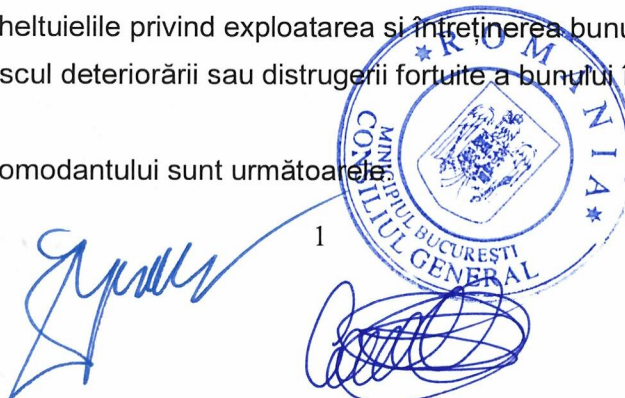 heltuielile privind exploatarea și întreținerea bunu
scul deteriorării sau distrugerii fortuite a bunului î
omodantului sunt următoarele
1
* ROMÂNIA *
CONSILIUL GENERAL
MUNICIPIUL BUCUREȘTI